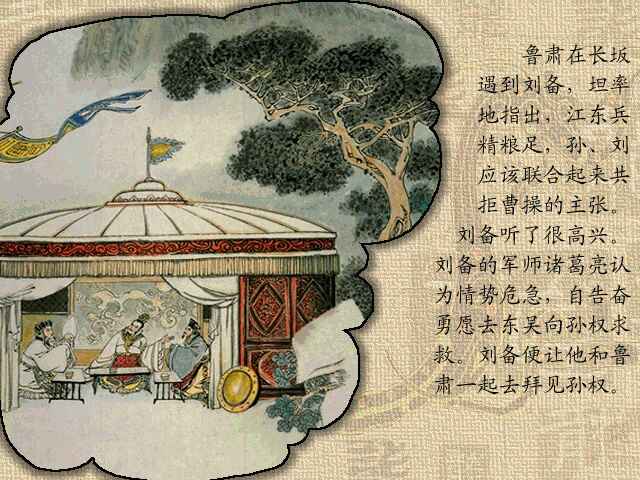 鲁肃在长坂
遇到刘备，坦率
地指出，江东兵
精粮足，孙、刘
应该联合起来共
拒曹操的主张。
刘备听了很高兴。
刘备的军师诸葛亮认
为情势危急，自告奋
勇愿去东吴向孙权求
救。刘备便让他和鲁
肃一起去拜见孙权。